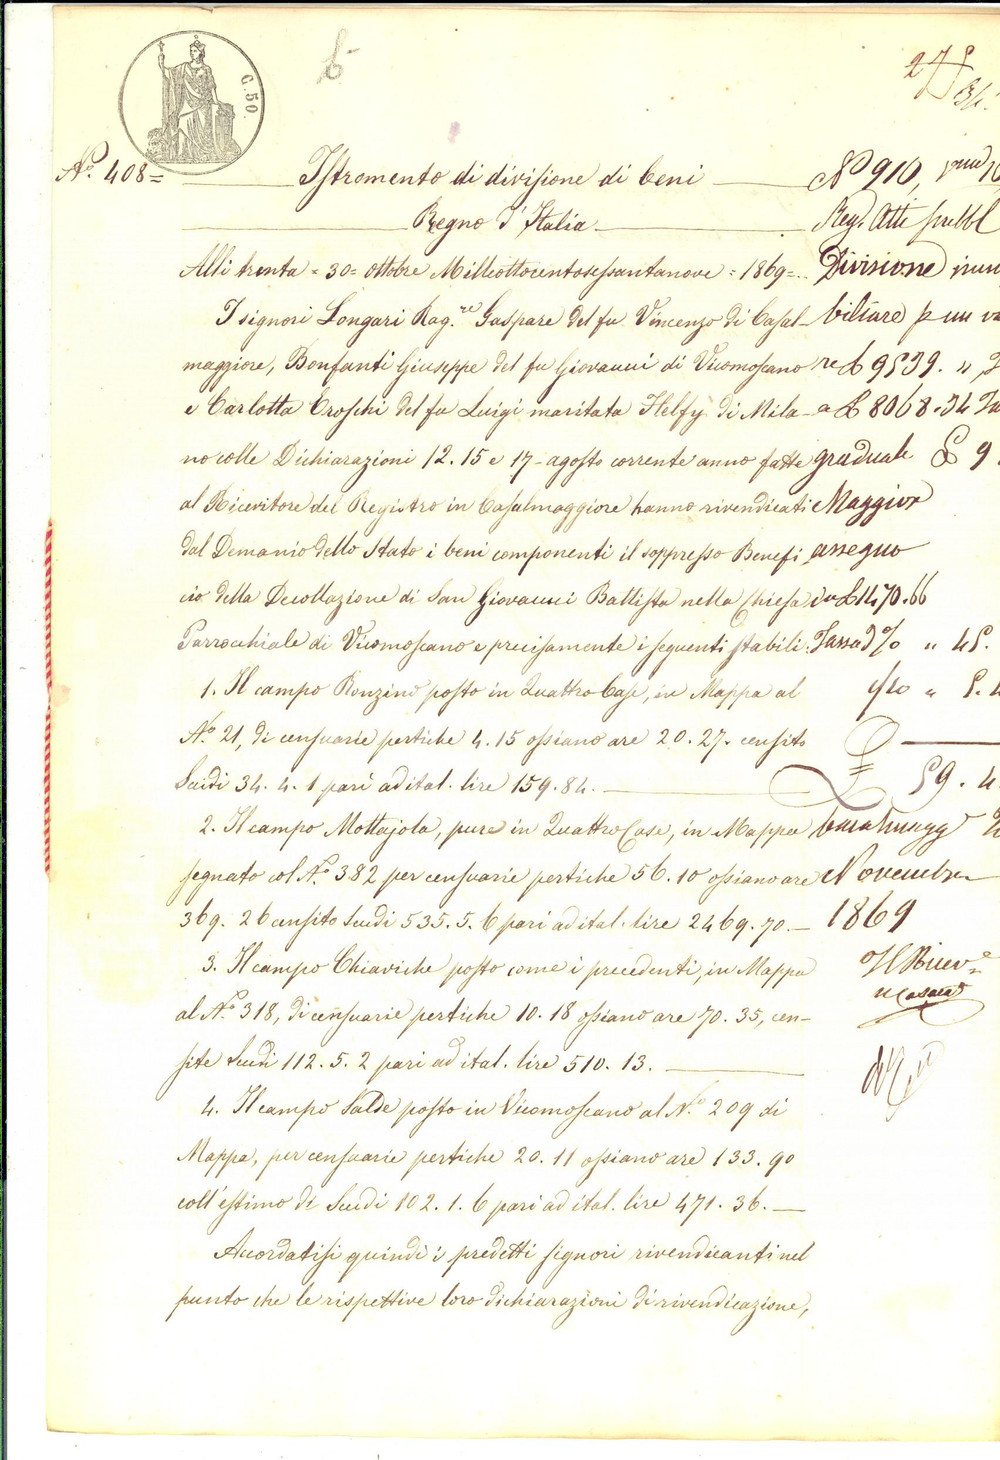 C. 50.
N.º 408=
Istromento di divisione di beni
Regno d'Italia.
Alli trenta = 30 = ottobre Milleottocentosessantanove = 1869 =
I signori Longari Rag.re Gaspare del fu Vincenzo di Casal-
maggiore, Bonfanti Giuseppe del fu Giovanni di Vicomoscano
e Carlotta Croschi del fu Luigi maritata Helfy di Mila-
no colle Dichiarazioni 12. 15 e 17 - agosto corrente anno fatte
al Ricevitore del Registro in Casalmaggiore hanno rivendicati
dal Demanio dello Stato i beni componenti il soppresso Benefi
cio della Decollazione di San Giovanni Battista nella Chiesa
Parrocchiale di Vicomoscano e precisamente i seguenti stabili.
1. Il campo Ronzino posto in Quattro Case, in Mappa al
N.º 21, di censuarie pertiche 4. 15 ossiano are 20. 27. censito
Scudi 34. 4. 1 pari ad ital. lire 159. 84.
2. Il campo Mottajola, pure in Quattro Case, in Mappa
segnato col N.º 382 per censuarie pertiche 56. 10 ossiano are
369. 26 censito Scudi 535. 5. 6 pari ad ital. lire 2469. 70.
3. Il campo Chiaviche posto come i precedenti, in Mappa
al N.º 318, di censuarie pertiche 10. 18 ossiano are 70. 35, cen-
site Scudi 112. 5. 2 pari ad ital. lire 510. 13.
4. Il campo Salde posto in Vicomoscano al N.º 209 di
Mappa, per censuarie pertiche 20. 11 ossiano are 133. 90
coll'estimo di Scudi 102. 1. 6 pari ad ital. lire 471. 36.
Accordatisi quindi i predetti signori rivendicanti nel
punto che le rispettive loro dichiarazioni di rivendicazione,
Nº 910,
Reg. Atti pubbl
Divisione
biliare p un va
re £ 9539. "
a £ 8068.34
graduale £ 9.
Maggior
assegno
in £ 1470.66
Tassa 3% " 45.
1/10 " 5.
59. 4
Novembre
1869
Il Ricev.e